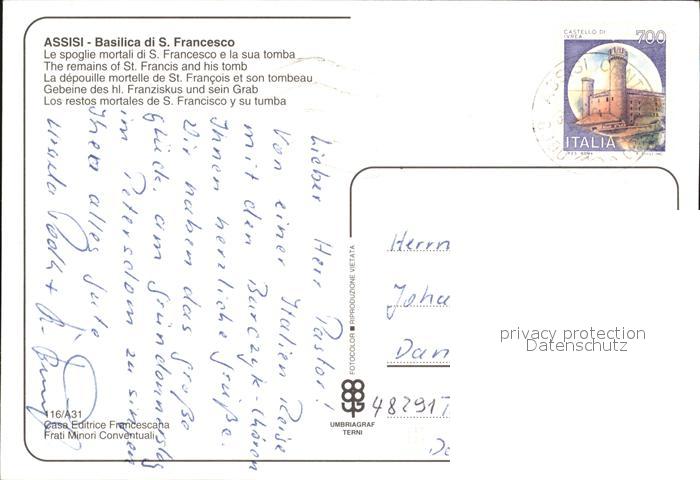 ASSISI - Basilica di S. Francesco
Le spoglie mortali di S. Francesco e la sua tomba
The remains of St. Francis and his tomb
La dépouille mortelle de St. François et son tombeau
Gebeine des hl. Franziskus und sein Grab
Los restos mortales de S. Francisco y su tumba
CASTELLO DI
IVREA
700
ITALIA
ASSISI CENTRO
Lieber Herr Pastor!
Von einer Italien Reise
mit den Burczyk-Chören
Ihnen herzliche Grüße.
Wir haben das große
Glück, am Gründonnerstag
im Petersdom zu singen
Ihnen alles Gute
Ursula
FOTOCOLOR ■ RIPRODUZIONE VIETATA
UMBRIAGRAF
TERNI
Herrn
Joha
Dam
48291 T
privacy protection
Datenschutz
116/A31
Casa Editrice Francescana
Frati Minori Conventuali